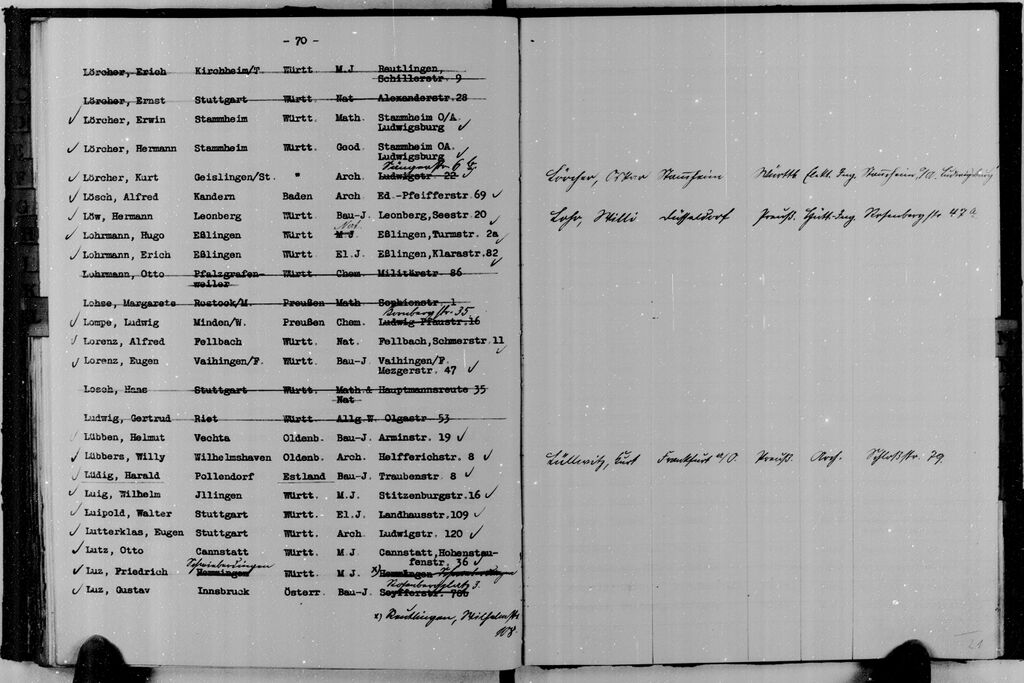 - 70 -
Lörcher, Erich Kirchheim/T. Württ M.J Reutlingen,
Schillerstr. 9
Lörcher, Ernst Stuttgart Württ. Nat Alexanderstr.28
Lörcher, Erwin Stammheim Württ. Math. Stammheim O/A.
Ludwigsburg
Lörcher, Hermann Stammheim Württ. Geod. Stammheim OA.
Ludwigsburg
Sängerstr. 6
Lörcher, Kurt Geislingen/St. " Arch. Ludwigstr. 22
Lösch, Alfred Kandern Baden Arch Ed.-Pfeifferstr.69
Löw, Hermann Leonberg Württ Bau-J. Leonberg,Seestr.20
Nat.
Lohrmann, Hugo Eßlingen Württ M J Eßlingen,Turmstr. 2a
Lohrmann, Erich Eßlingen Württ El.J. Eßlingen,Klarastr.82
Lohrmann, Otto Pfalzgrafen- Württ Chem. Militärstr. 86
weiler
Lohse, Margarete Rostock/M. Preußen Math Sophienstr. 1
Dornbergstr. 35
Lompe, Ludwig Minden/W. Preußen Chem. Ludwig Pfaustr.16
Lorenz, Alfred Fellbach Württ. Nat. Fellbach,Schmerstr.11
Lorenz, Eugen Vaihingen/F. Württ. Bau-J Vaihingen/F.
Mezgerstr. 47
Losch, Hans Stuttgart Württ. Math.& Hauptmannsreute 35
Nat
Ludwig, Gertrud Riet Württ Allg W. Olgastr 53
Lübben, Helmut Vechta Oldenb. Bau-J. Arminstr. 19
Lübbers, Willy Wilhelmshaven Oldenb. Arch. Helfferichstr. 8
Lüdig, Harald Pollendorf Estland Bau-J. Traubenstr 8
Luig, Wilhelm Jllingen Württ. M.J. Stitzenburgstr.16
Luipold, Walter Stuttgart Württ. El.J. Landhausstr.109
Lutterklas, Eugen Stuttgart Württ. Arch Ludwigstr. 120
Lutz, Otto Cannstatt Württ. M.J Cannstatt,Hohenstau-
fenstr. 36
Schwieberdingen
Luz, Friedrich Hemmingen Württ. M J. x) Hemmingen Schwieberdingen
Rosenbergplatz 3.
Luz, Gustav Innsbruck Österr. Bau-J. Seyfferstr. 78b
x) Reutlingen, Wilhelmstr.
108.
Lörcher, Oskar Stammheim Württb Elekt. Ing. Stammheim O/A. Ludwigsburg
Lohr, Willi Düsseldorf Preuß. Hütt-Ing. Rosenbergstr 47a
Lüllwitz, Curt Frankfurt a/O. Preuß. Arch. Schloßstr. 79